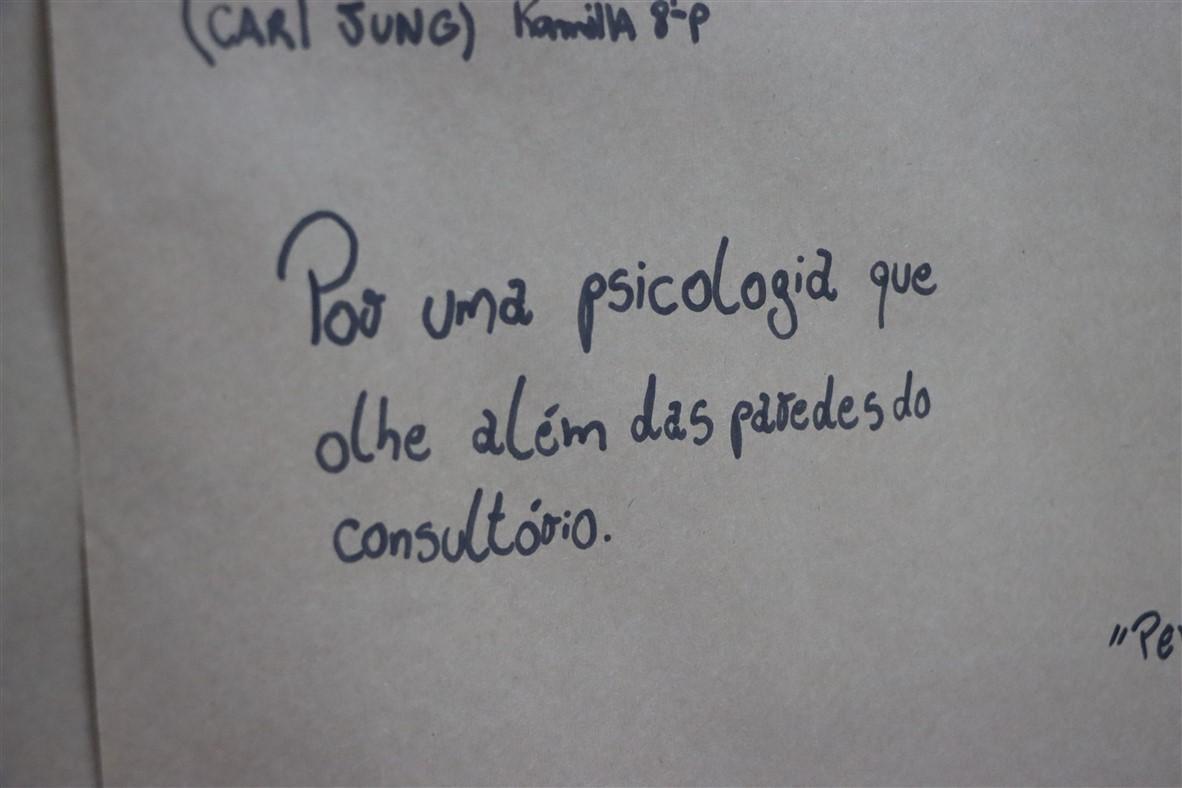 (CARL JUNG) Kamilla 8º-P
Por uma psicologia que
olhe além das paredes do
consultório.
"Pe